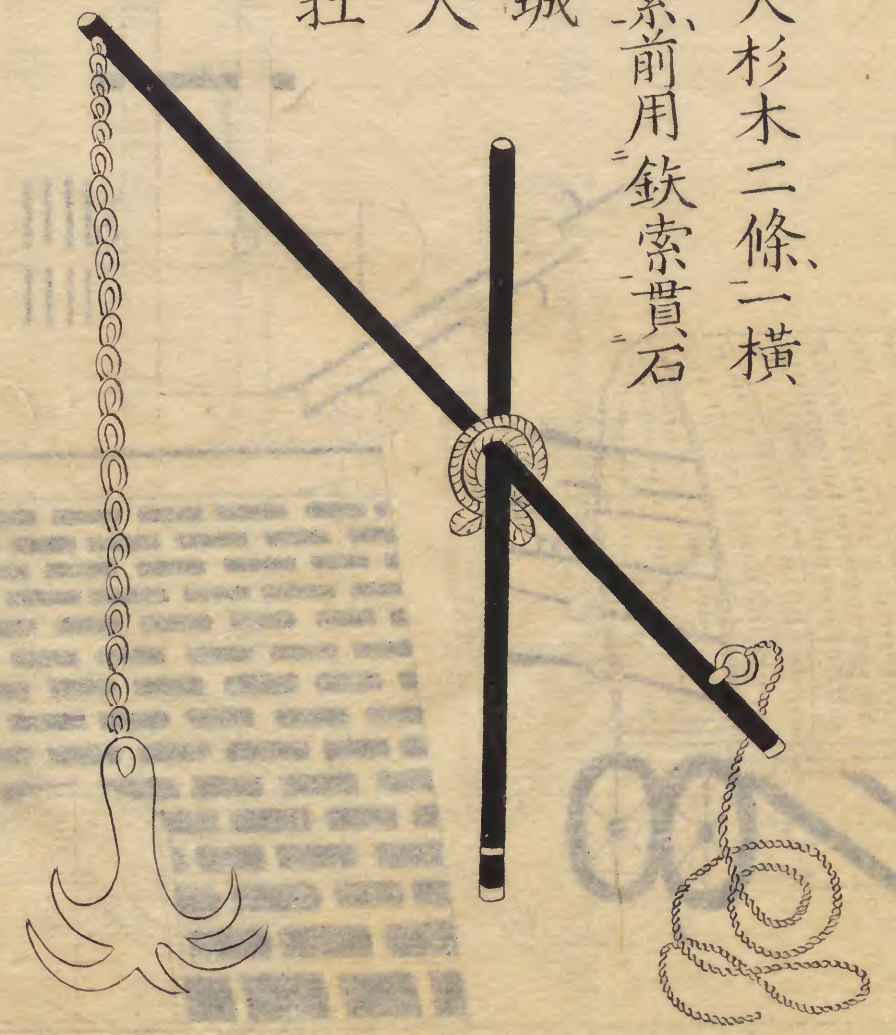 杉木二條、一橫
前用鉄索貫石
城